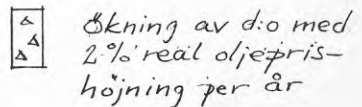 Ökning av d:o med
2% real oljepris-
höjning per år